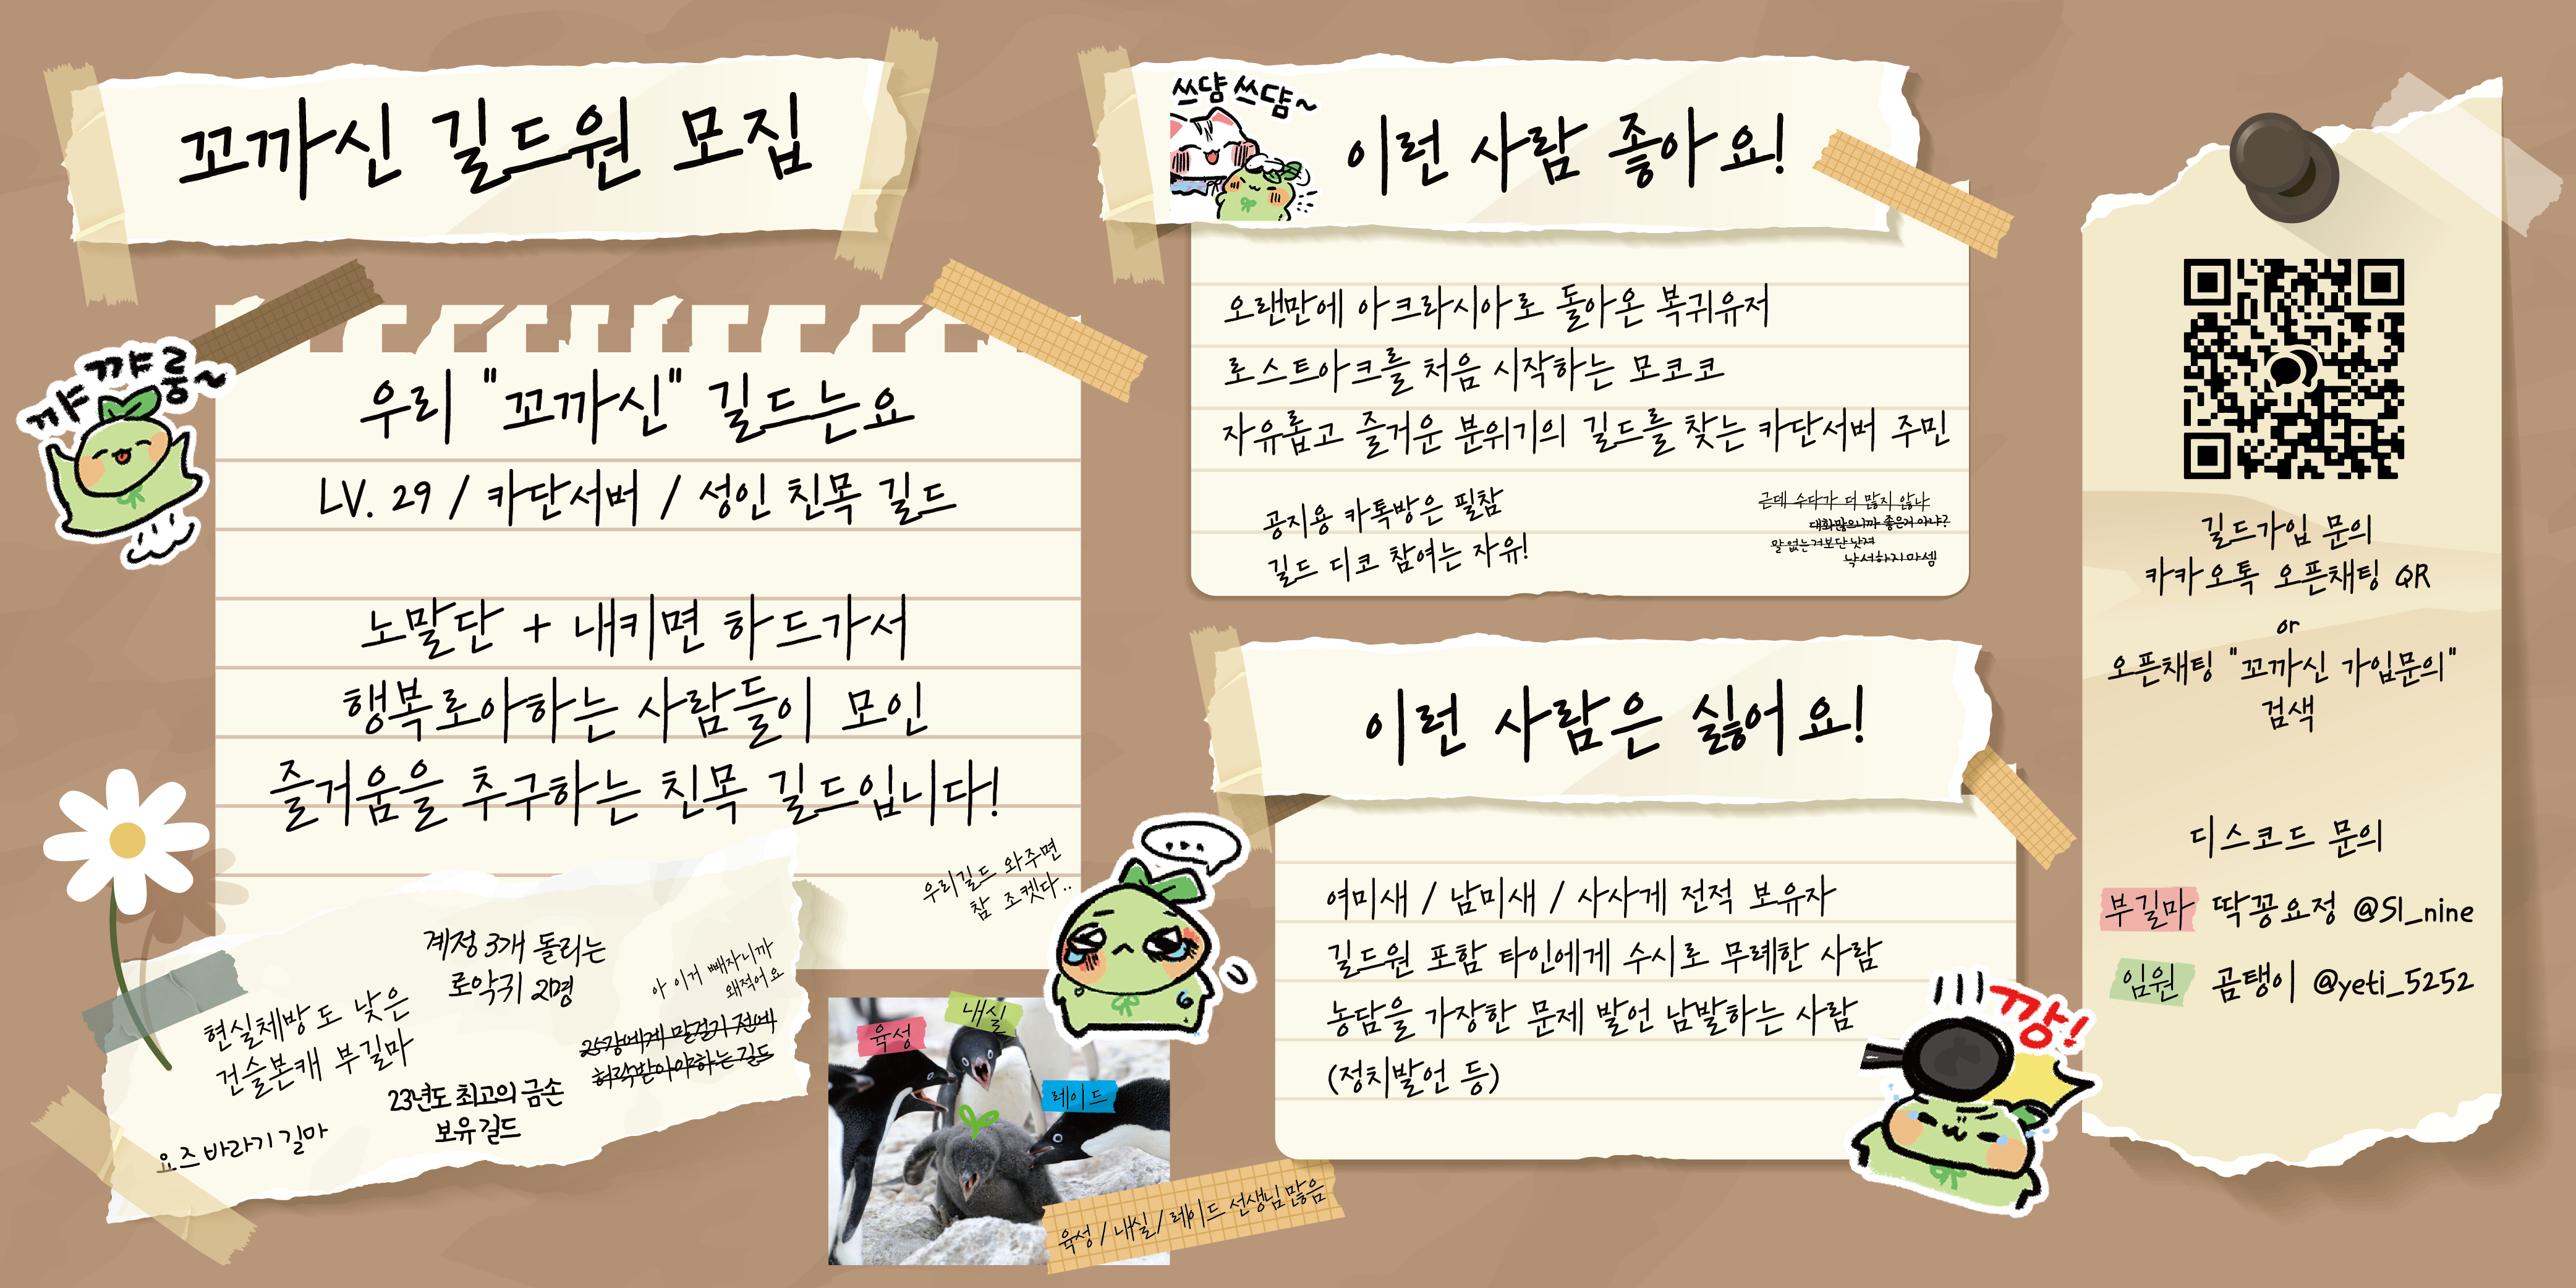 꼬까신 길드원 모집
꺄꺄룽~
우리 "꼬까신" 길드는요
LV. 29 / 카단서버 / 성인 친목 길드
노말단 + 내키면 하드가서
행복로아하는 사람들이 모인
즐거움을 추구하는 친목 길드입니다!
우리길드 와주면
참 조켓다..
계정 3개 돌리는
로악귀 2명
아 이거 빼자니까
왜적어요
현실체방도 낮은
건슬본캐 부길마
25강에게 말걸기 전에
허락받아야하는 길드
23년도 최고의 금손
보유길드
요즈바라기 길마
육성
내실
레이드
육성 / 내실 / 레이드 선생님 많음
...
쓰담쓰담~
이런 사람 좋아요!
오랜만에 아크라시아로 돌아온 복귀유저
로스트아크를 처음 시작하는 모코코
자유롭고 즐거운 분위기의 길드를 찾는 카단서버 주민
공지용 카톡방은 필참
길드 디코 참여는 자유!
근데 수다가 더 많지 않나
대화많으니까 좋은거 아냐?
말 없는거보단 낫져
낙서하지마셈
이런 사람은 싫어요!
여미새 / 남미새 / 사사게 전적 보유자
길드원 포함 타인에게 수시로 무례한 사람
농담을 가장한 문제 발언 남발하는 사람
(정치발언 등)
깡!
길드가입 문의
카카오톡 오픈채팅 QR
or
오픈채팅 "꼬까신 가입문의"
검색
디스코드 문의
부길마 딱꽁요정 @Sl_nine
임원 곰탱이 @yeti_5252